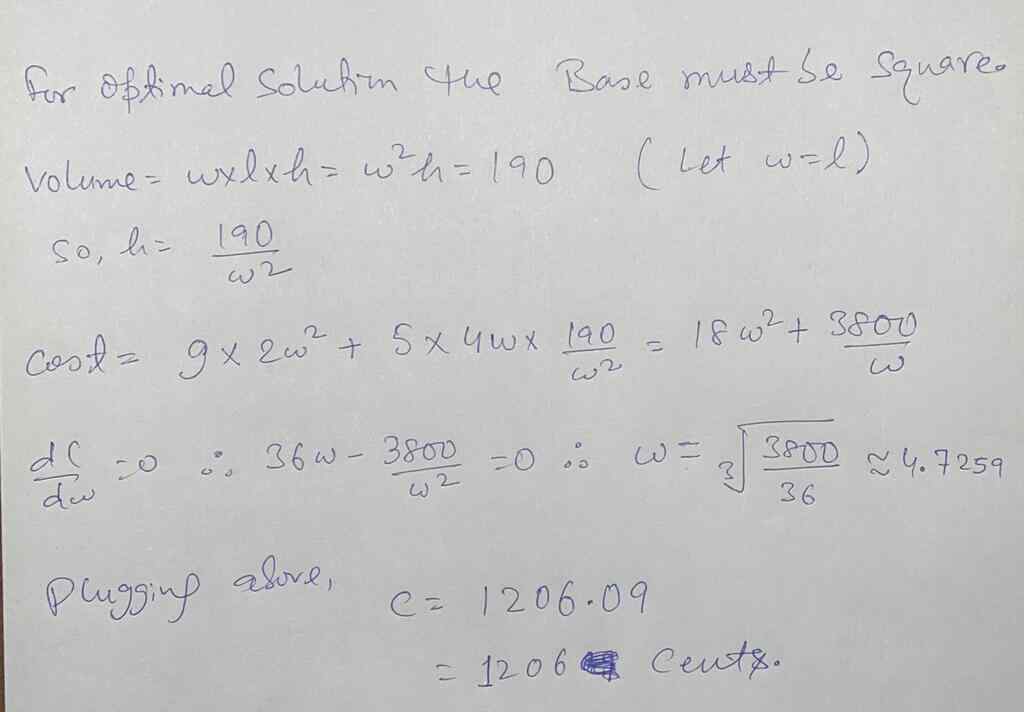 For Optimal Solution the Base must be Square.
Volume = w×l×h = w²h = 190 ( Let w=l )
So, h = 190/w²
Cost = 9×2w² + 5×4w× 190/w² = 18w² + 3800/w
dC/dw =0 ∴ 36w - 3800/w² =0 ∴ w = ∛(3800/36) ≈ 4.7259
Plugging above, C = 1206.09
= 1206 Cents.